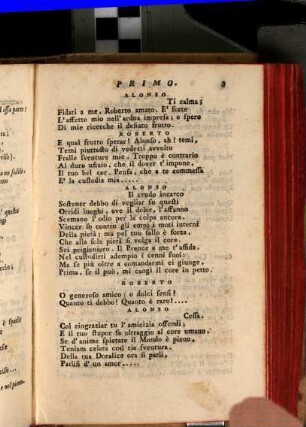 PRIMO. 3
ALONSO
Ti calma;
Fidati a me, Roberto amato. E' forte
L'affetto mio nell'ardita impresa; e spero
Di mie ricerche il desiato frutto.
ROBERTO
E qual frutto sperar! Alonso, ah! temi,
Temi piuttosto di vederti avvolto
Fralle sventure mie. Troppo è contrario
Al duro ufizio, che il dover t'impone,
Il tuo bel cor. Pensa, che a te commessa
E' la custodia mia.....
ALONSO
Il crudo incarco
Sostener debbo di vegliar su questi
Orridi luoghi, ove il dolce, l'affanno
Scemano l'odio per la colpa ancora.
Vincer so contro gli empj i moti interni
Della pietà; ma pel tuo fallo è forza,
Che alla sola pietà si volga il core.
Sei prigioniero. Il Prence a me t'affida.
Nel custodirti adempio i cenni suoi:
Ma se più oltre a comandarmi ei giunge,
Prima, se il può, mi cangi il core in petto.
ROBERTO
O generoso amico; o dolci sensi!
Quanto ti debbo! Quanto è raro!....
ALONSO
Cessa.
Col ringraziar tu l'amicizia offendi;
E il tuo stupor fa oltraggio al core umano.
Se d'anime spietate il Mondo è pieno,
Teniam celata così ria sventura.
Della tua Doralice ora si parli,
Parlisi d'un amor.....